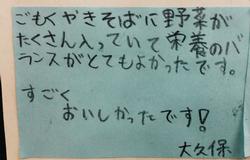 ごもくやきそばに野菜が
たくさん入っていて栄養のバ
ランスがとてもよかったです。
すごく
おいしかったです!
大久保